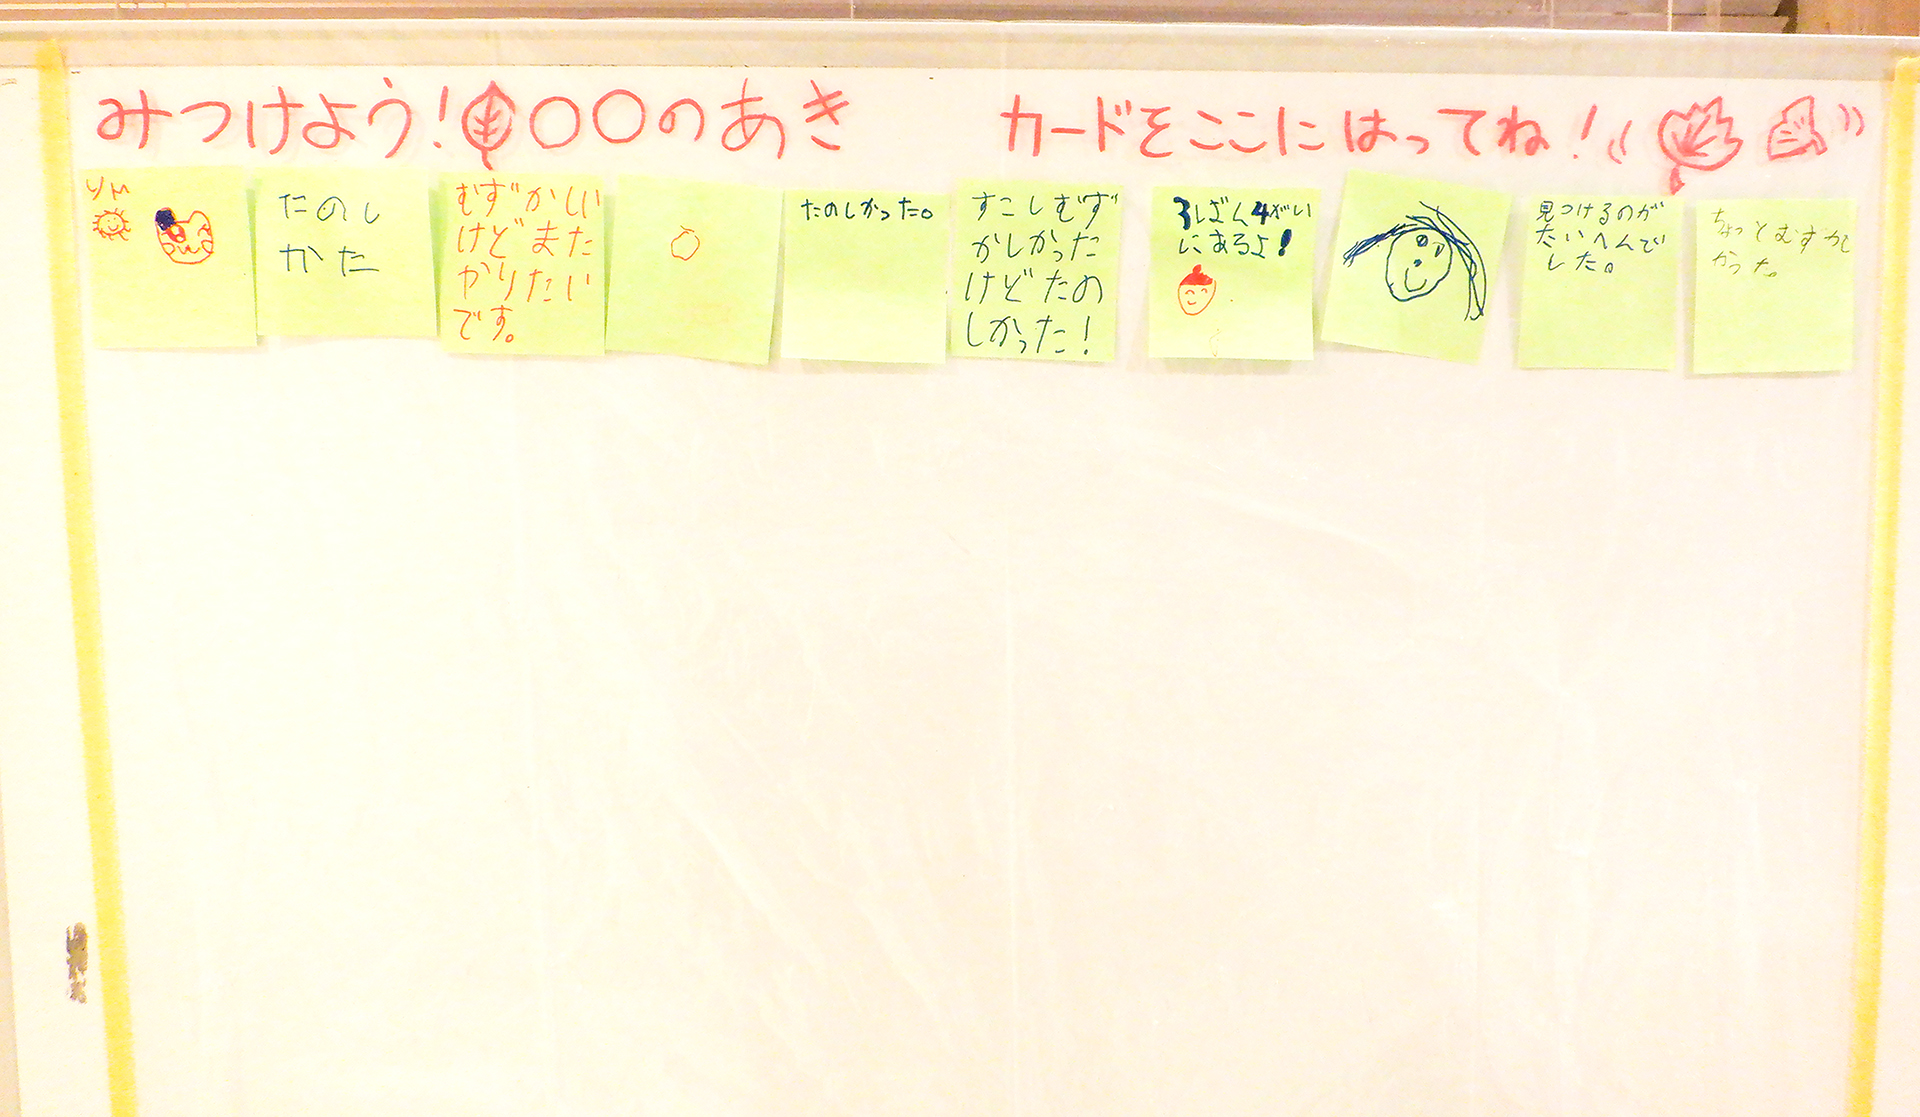 みつけよう!〇〇のあき
カードをここにはってね!
たのし
かた
むずかしい
けどまた
やりたい
です。
たのしかった。
すこしむず
かしかった
けどたの
しかった!
3ばん4がい
にあるよ!
見つけるのが
たいへんで
した。
ちょっとむずかし
かった。